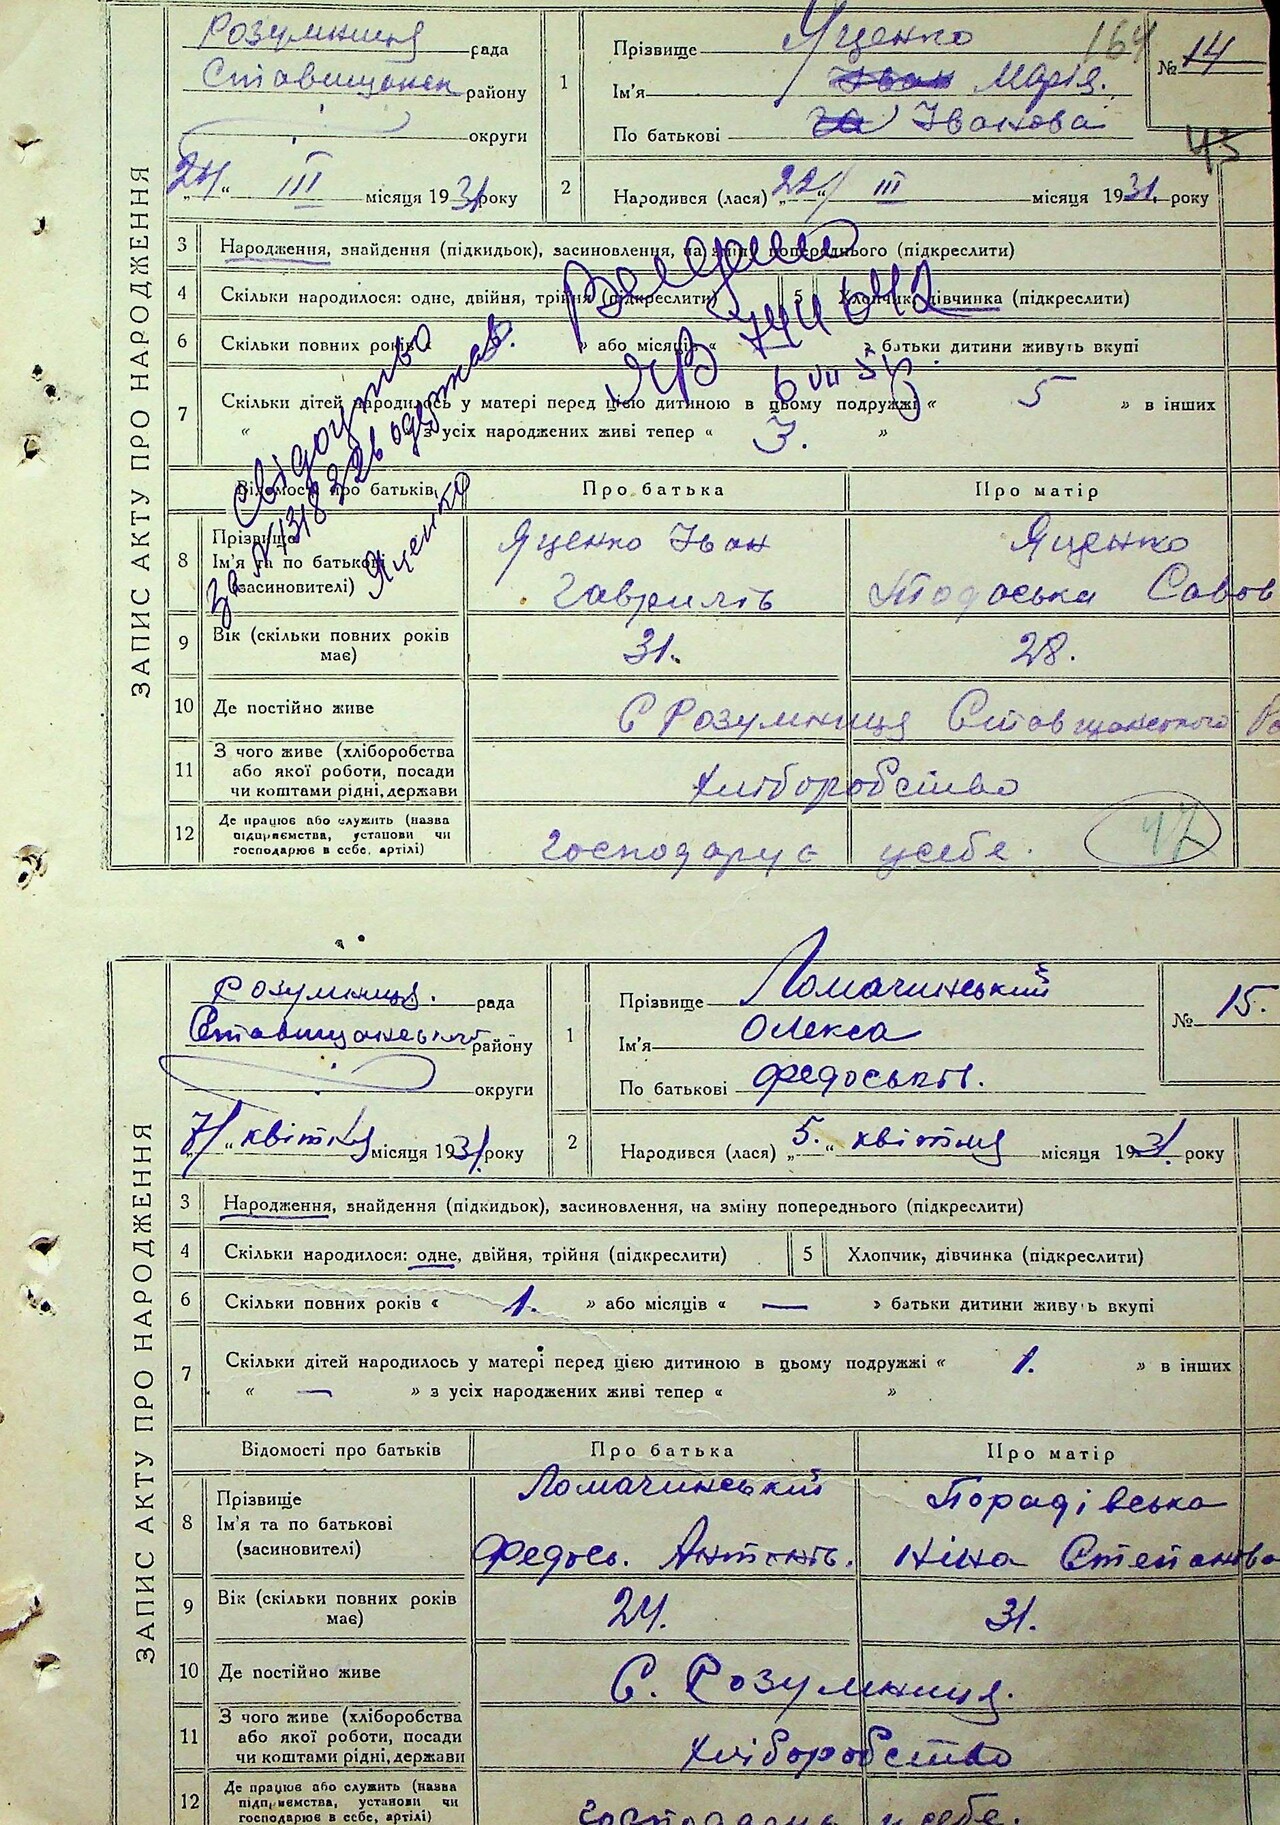 ЗАПИС АКТУ ПРО НАРОДЖЕННЯ
Розумниця рада
Ставищанськ району
округи
24 " III місяця 1931 року
1 Прізвище Яценко 164
Ім'я Іван Марія.
По батькові Іванова
№ 14
45
2 Народився (лася) „22" III місяця 1931. року
3 Народження, знайдення (підкидьок), засиновлення, на зміну попереднього (підкреслити)
4 Скільки народилося: одне, двійня, трійня (підкреслити) 5 Хлопчик, дівчинка (підкреслити)
6 Скільки повних років « » або місяців « » батьки дитини живуть вкупі
7 Скільки дітей народилось у матері перед цією дитиною в цьому подружжі « 5 » в інших
« » з усіх народжених живі тепер « 3. »
Свідоцтво
за № 1318226 одержав.
Яценко
Відомості про батьків Про батька Про матір
8 Прізвище
Ім'я та по батькові
(засиновителі)
Яценко Іван
Гаврилів
Яценко
Тодоська Савов
9 Вік (скільки повних років має) 31. 28.
10 Де постійно живе С Розумниця Ставищанського
11 З чого живе (хліборобства
або якої роботи, посади
чи коштами рідні, держави
Хліборобство
12 Де працює або служить (назва
підприємства, установи чи
господарює в себе, артілі)
Господарує усебе.
47
ЗАПИС АКТУ ПРО НАРОДЖЕННЯ
Розумниця. рада
Ставищанського району
округи
7 " квітня місяця 1931. року
1 Прізвище Ломачинський
Ім'я Олекса
По батькові Федоськів.
№ 15.
2 Народився (лася) „5." квітня місяця 1931. року
3 Народження, знайдення (підкидьок), засиновлення, на зміну попереднього (підкреслити)
4 Скільки народилося: одне, двійня, трійня (підкреслити) 5 Хлопчик, дівчинка (підкреслити)
6 Скільки повних років « 1. » або місяців « — » батьки дитини живуть вкупі
7 Скільки дітей народилось у матері перед цією дитиною в цьому подружжі « 1. » в інших
« — » з усіх народжених живі тепер « »
Відомості про батьків Про батька Про матір
8 Прізвище
Ім'я та по батькові
(засиновителі)
Ломачинський
Федось. Антонів.
Порадівська
Ніна Степанова
9 Вік (скільки повних років має) 24. 31.
10 Де постійно живе С. Розумниця.
11 З чого живе (хліборобства
або якої роботи, посади
чи коштами рідні, держави
Хліборобство
12 Де працює або служить (назва
підприємства, установи чи
господарює в себе, артілі)
господарує усебе.